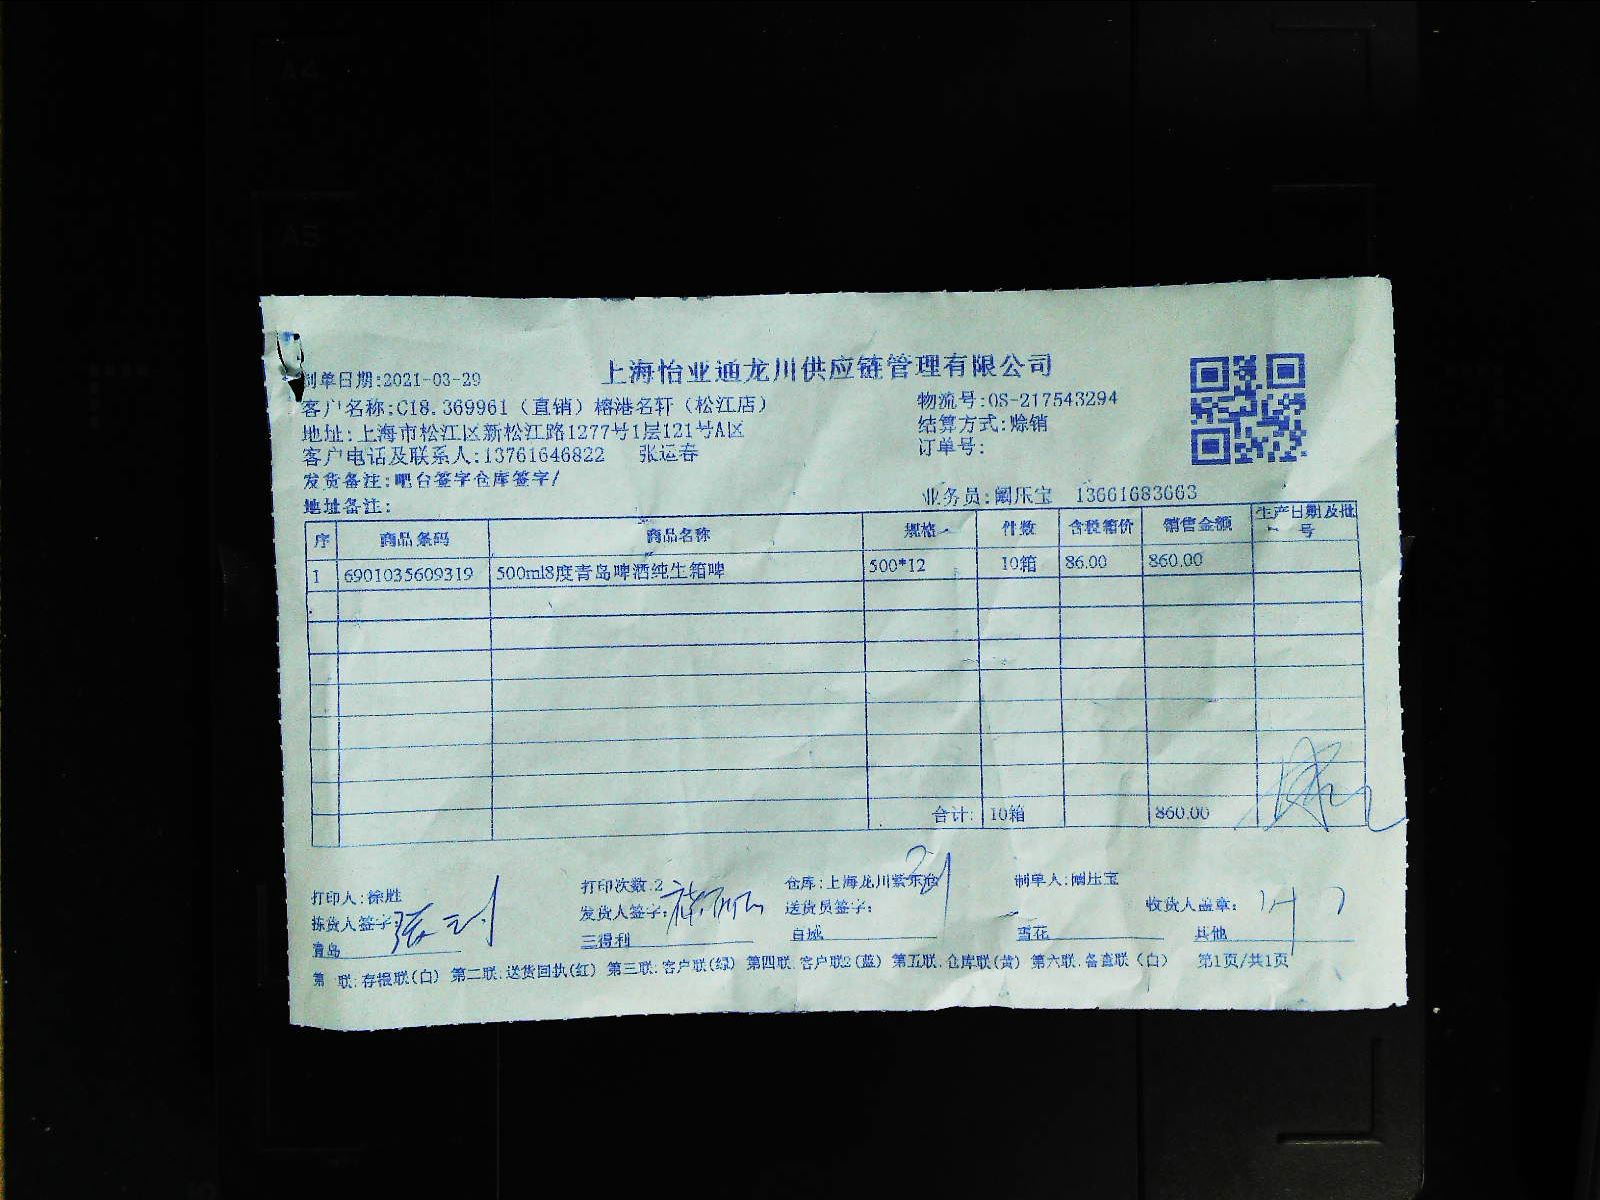 上海怡亚通龙川供应链管理有限公司
制单日期:2021-03-29
客户名称:C18.369961（直销）榕港名轩（松江店）
物流号:OS-217543294
地址:上海市松江区新松江路1277号1层121号A区
结算方式:赊销
客户电话及联系人:13761646822 张运春
订单号:
发货备注:吧台签字仓库签字/
地址备注:
业务员:阚压宝 13661683663
序 商品条码 商品名称 规格 件数 含税箱价 销售金额 生产日期及批号
1 6901035609319 500ml8度青岛啤酒纯生箱啤 500*12 10箱 86.00 860.00
合计: 10箱 860.00
打印人:徐胜 打印次数:2 仓库:上海龙川紫东冶 制单人:阚压宝
拣货人签字: 发货人签字: 送货员签字: 收货人盖章:
青岛 三得利 百威 雪花 其他
第 联:存根联(白) 第二联:送货回执(红) 第三联:客户联(绿) 第四联:客户联2(蓝) 第五联:仓库联(黄) 第六联:备查联（白） 第1页/共1页
A4
A5